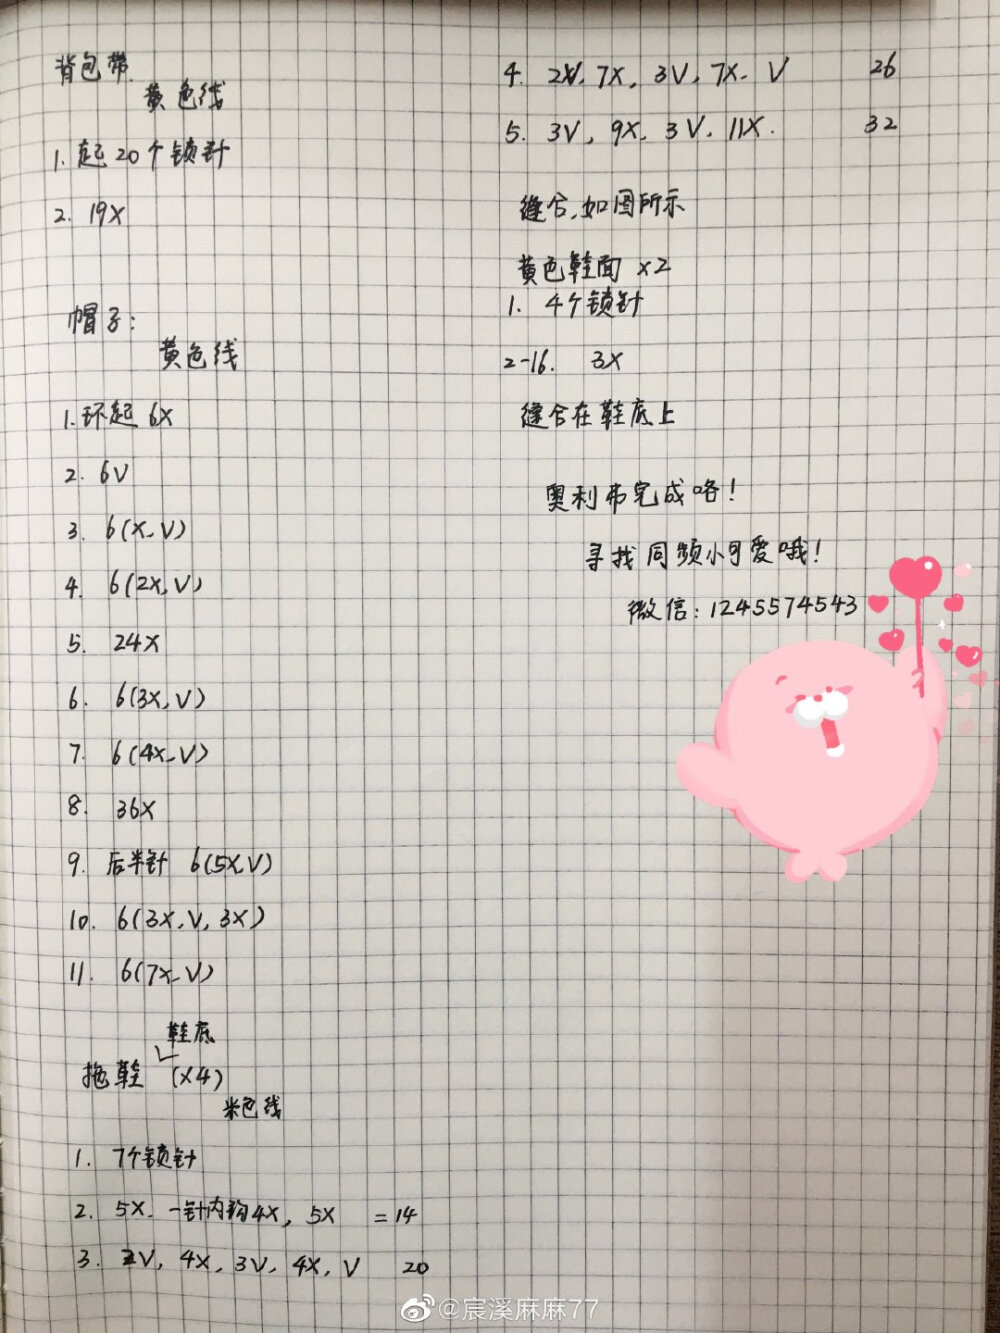 背包带
黄色线
1. 起20个锁针
2. 19X
帽子：
黄色线
1. 环起 6X
2. 6V
3. 6(X, V)
4. 6(2X, V)
5. 24X
6. 6(3X, V)
7. 6(4X, V)
8. 36X
9. 后半针 6(5X, V)
10. 6(3X, V, 3X)
11. 6(7X, V)
鞋底
拖鞋 (×4)
米色线
1. 7个锁针
2. 5X, 一针内钩4X, 5X =14
3. 2V, 4X, 3V, 4X, V 20
4. 2V, 7X, 3V, 7X, V 26
5. 3V, 9X, 3V, 11X. 32
缝合, 如图所示
黄色鞋面 ×2
1. 4个锁针
2-16. 3X
缝合在鞋底上
奥利弗完成咯！
寻找同频小可爱哦！
微信：1245574543
@宸溪麻麻77